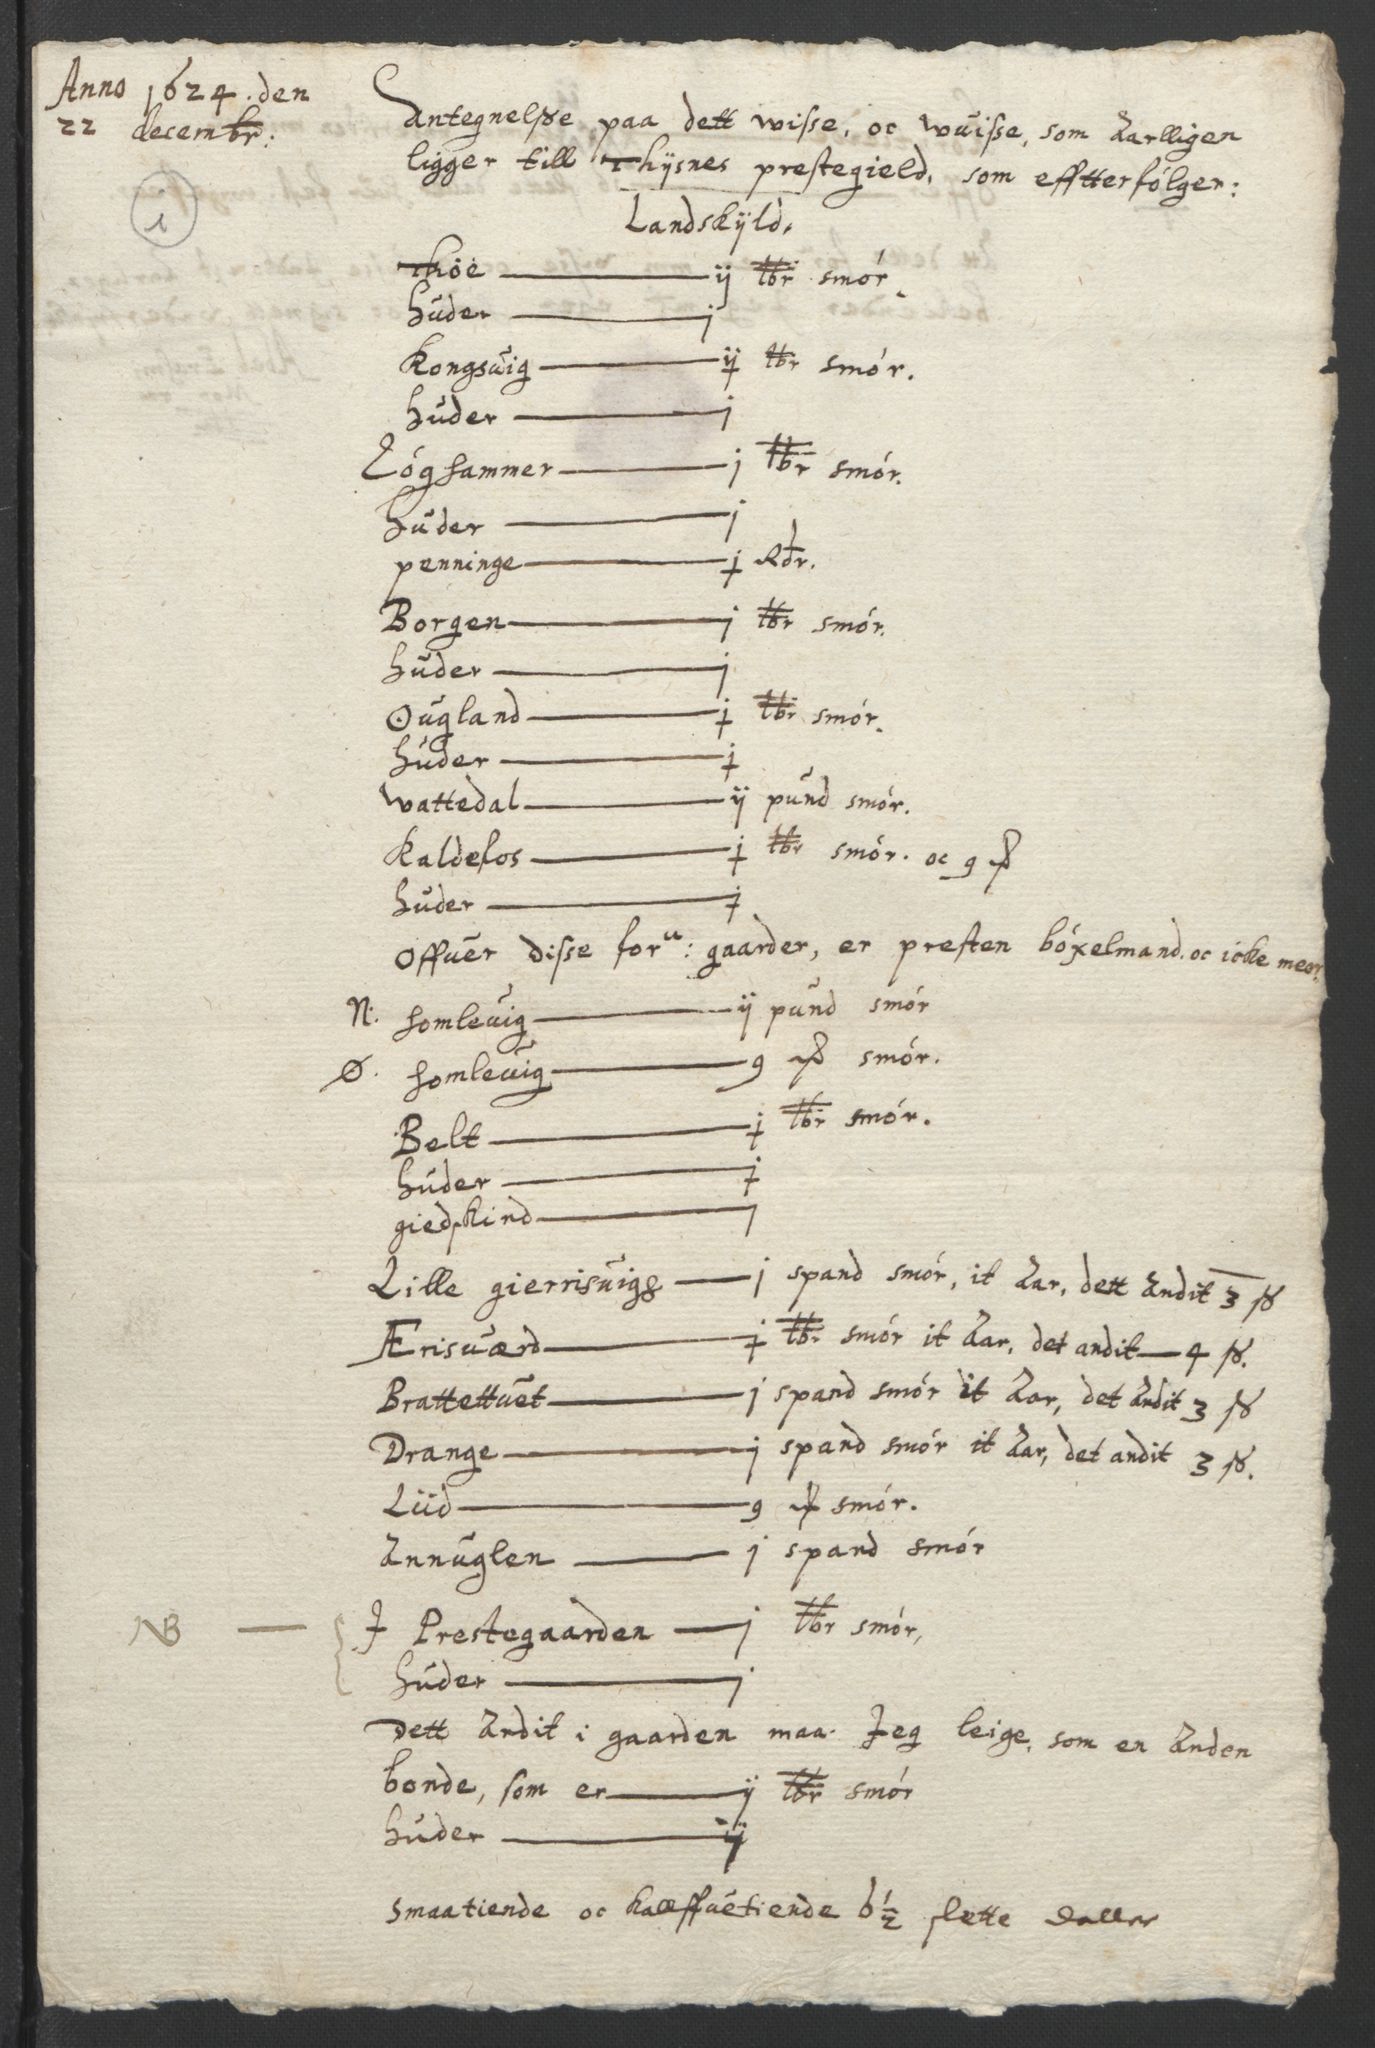 Anno 1624. den
22 decembr:
1
Antegnelsse paa dett wisse, oc wuisse, som Aarlligen
ligger till Thijsnes prestegield, som effterfölger:
Landskijld.
Thöe ij tbr smör
huder j
Kongsuig ij tbr smör.
huder j
Löghammer j tbr smör.
huder j
penninge j Rdr.
Borgen j tbr smör.
huder j
Ougland j tbr smör.
huder j
wattedal ij pund smör.
Kaldefos j tbr smör. oc 9
huder j
Offuer disse foru: gaarder, er presten böxelmand. oc icke meer.
N. homleuig ij pund smör
Ø. homleuig 9 smör.
Belt j tbr smör.
huder j
giedskind j
Lille gierrisuigh j spand smör, it Aar, dett Andit 3 ß
Ærisuærd j tbr smör it Aar, det andit 4 ß.
Brattettuet j spand smör it Aar, det Andit 3 ß
Drange j spand smör it Aar, det andit 3 ß.
Liid 9 smör.
Annuglen j spand smör
NB J Prestegaarden j tbr smör,
huder j
Dett Andit i gaarden maa Jeg leige, som en Anden
bonde, som er ij tbr smör
huder ij
smaatiende oc kalffuetiende 6 1/2 slette daller